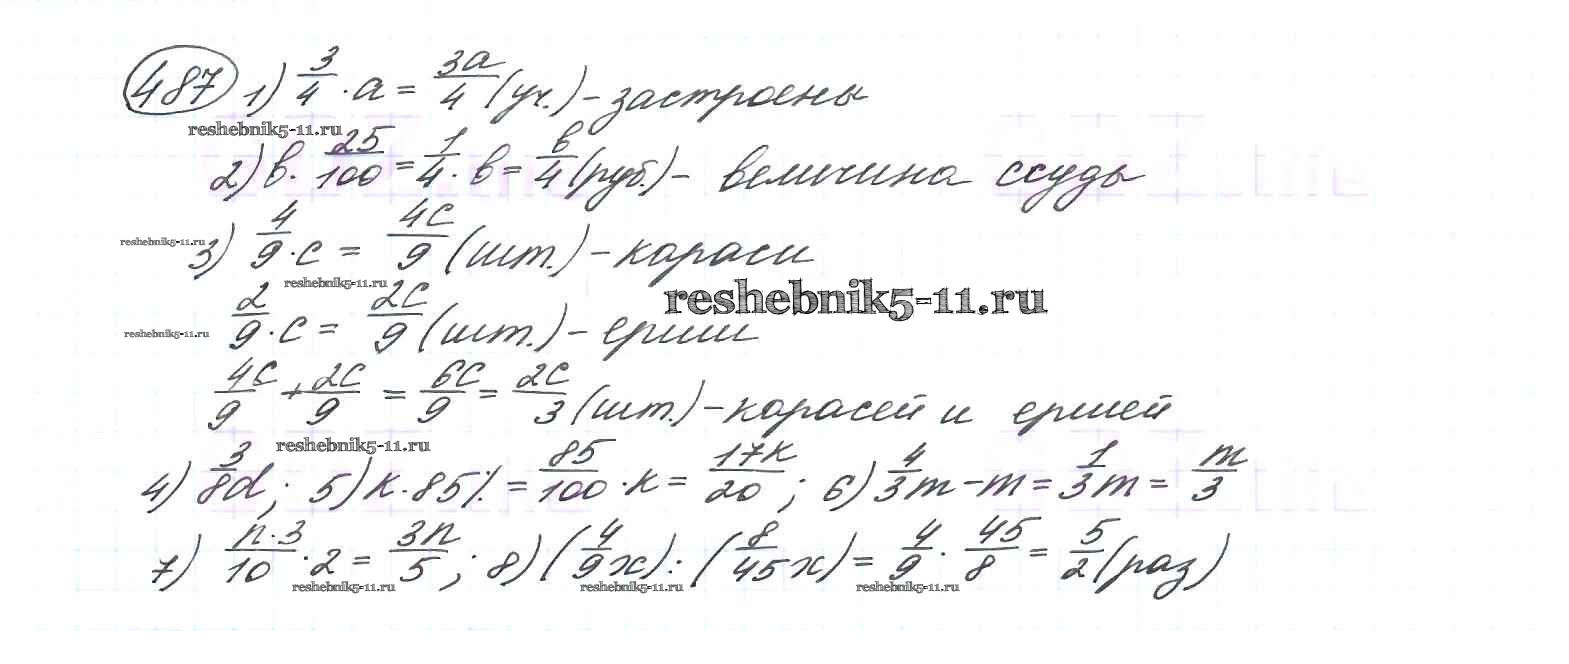 487 1) 3/4 · a = 3a/4 (уч.) - застроены
reshebnik5-11.ru
2) b · 25/100 = 1/4 · b = b/4 (руб.) - величина ссуды
reshebnik5-11.ru 3) 4/9 · c = 4c/9 (шт.) - караси
reshebnik5-11.ru reshebnik5-11.ru
reshebnik5-11.ru 2/9 · c = 2c/9 (шт.) - ерши
4c/9 + 2c/9 = 6c/9 = 2c/3 (шт.) - карасей и ершей
reshebnik5-11.ru
4) 3/8 d; 5) k · 85% = 85/100 · k = 17k/20; 6) 4/3 m - m = 1/3 m = m/3
7) n·3/10 · 2 = 3n/5; 8) (4/9 x) : (8/45 x) = 4/9 · 45/8 = 5/2 (раз)
reshebnik5-11.ru reshebnik5-11.ru reshebnik5-11.ru